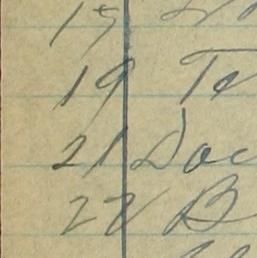 15
19 Te
21 Doc
22 B